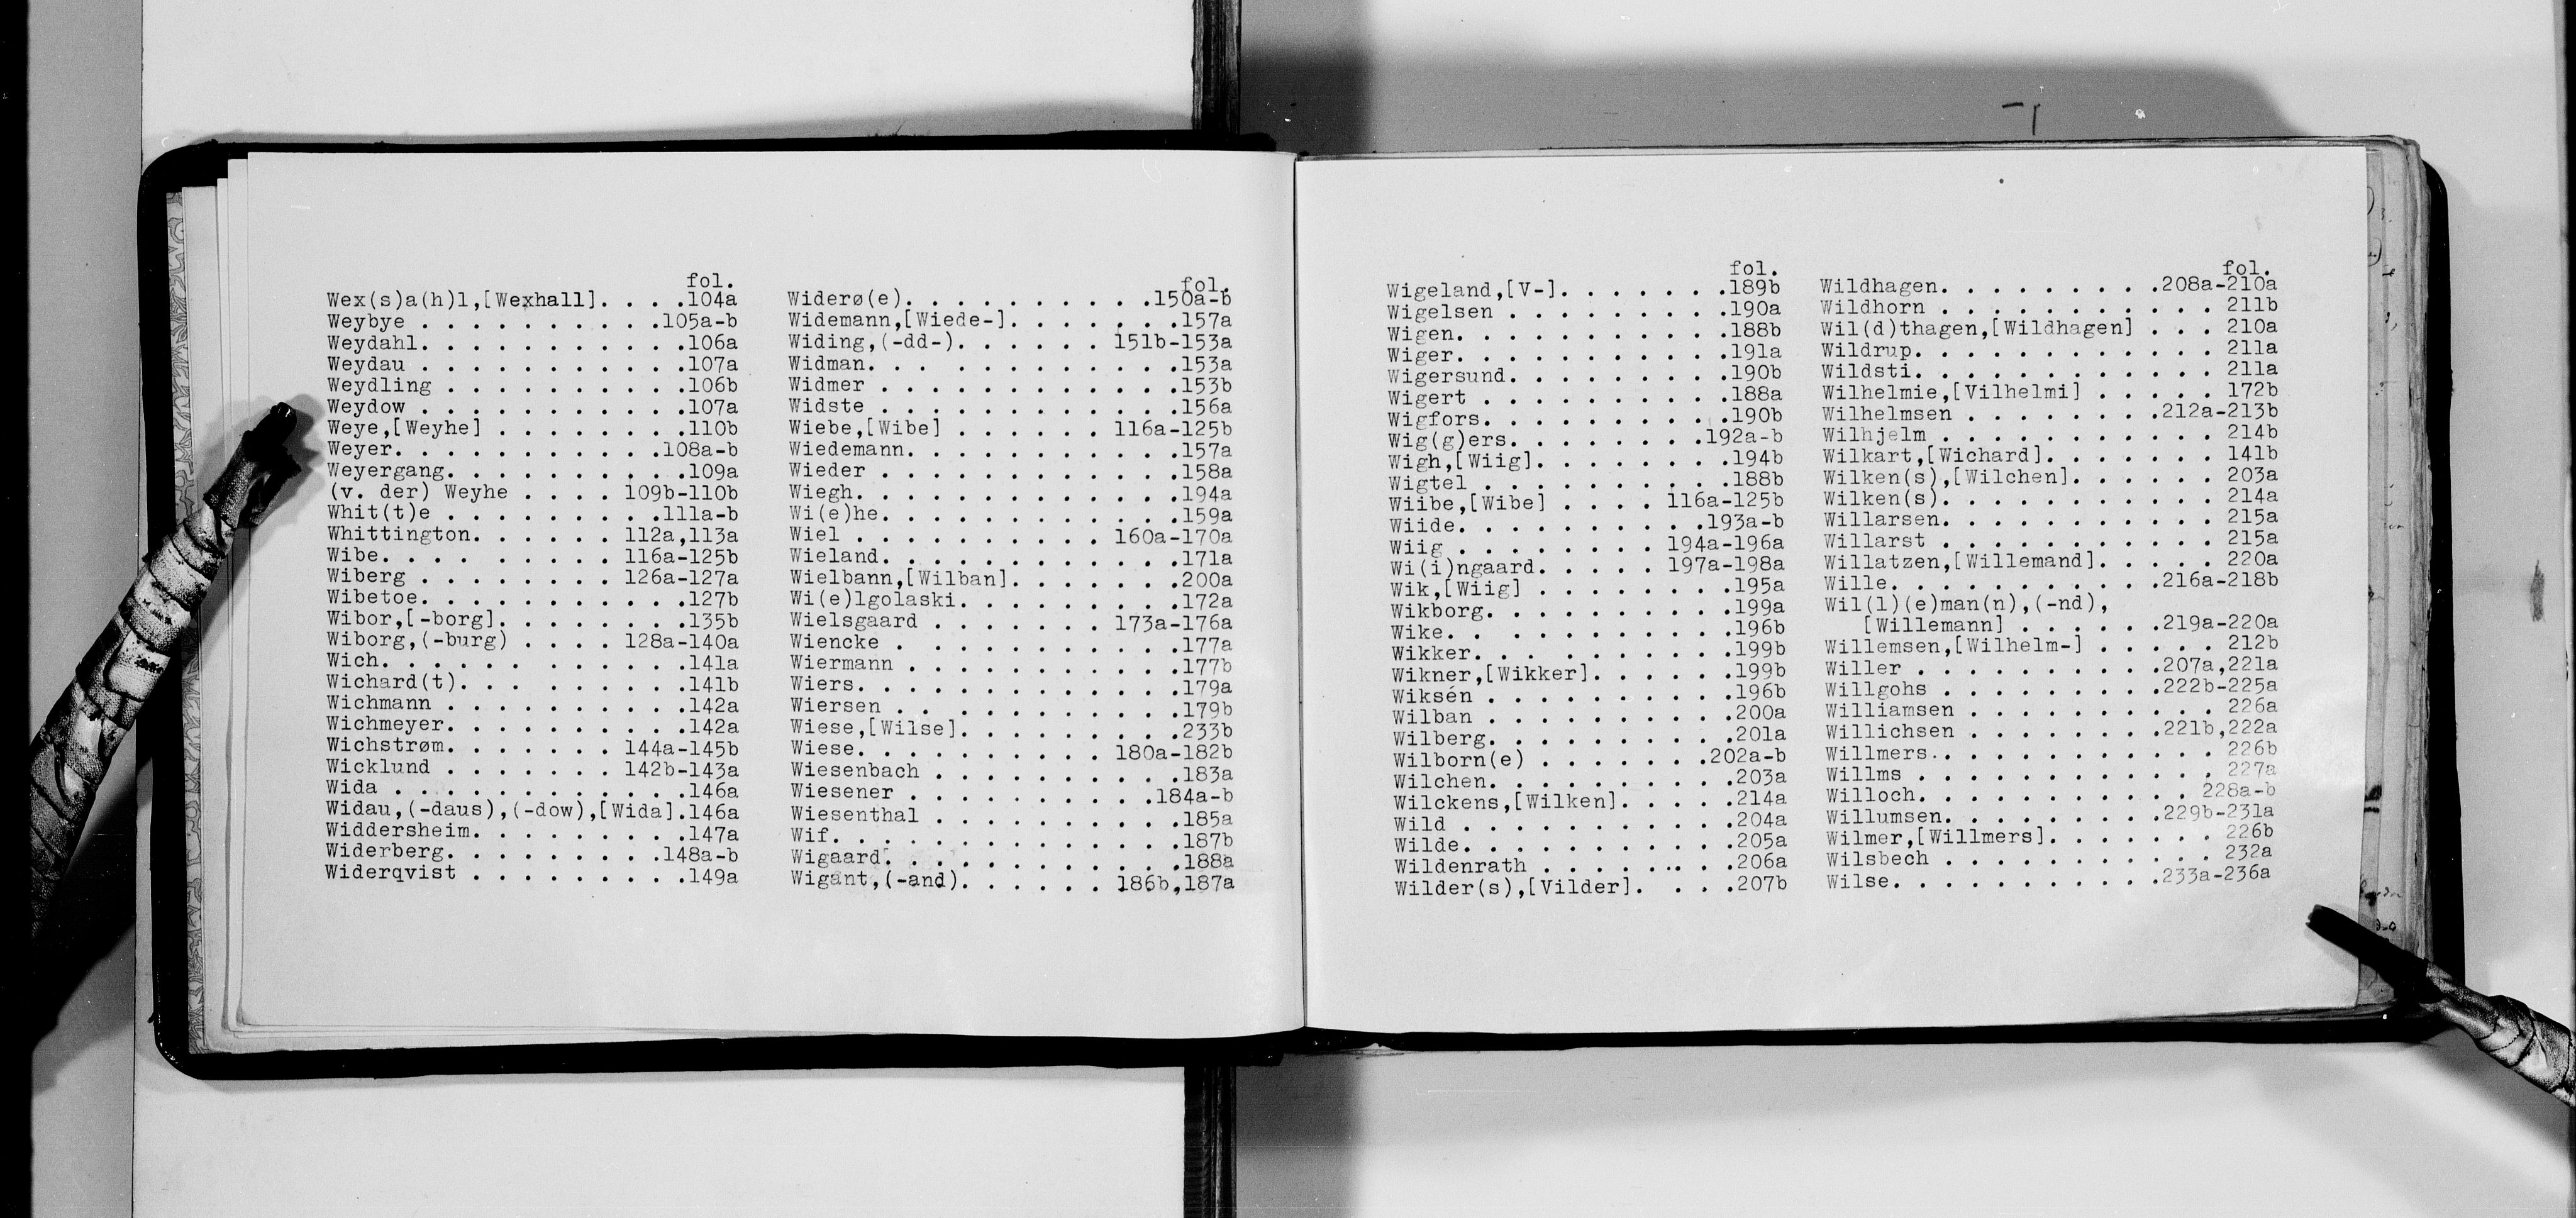 fol.
Wex(s)a(h)l,[Wexhall]. . . .104a
Weybye . . . . . . . . . .105a-b
Weydahl. . . . . . . . . . .106a
Weydau . . . . . . . . . . .107a
Weydling . . . . . . . . . .106b
Weydow . . . . . . . . . . .107a
Weye,[Weyhe] . . . . . . . .110b
Weyer. . . . . . . . . . .108a-b
Weyergang. . . . . . . . . .109a
(v. der) Weyhe . . . . 109b-110b
Whit(t)e . . . . . . . . .111a-b
Whittington. . . . . . 112a,113a
Wibe. . . . . . . . . 116a-125b
Wiberg . . . . . . . . 126a-127a
Wibetoe. . . . . . . . . . .127b
Wibor,[-borg]. . . . . . . .135b
Wiborg,(-burg) . . . . 128a-140a
Wich. . . . . . . . . . . . .141a
Wichard(t). . . . . . . . . .141b
Wichmann . . . . . . . . . .142a
Wichmeyer. . . . . . . . . .142a
Wichstrøm. . . . . . . 144a-145b
Wicklund . . . . . . . 142b-143a
Wida . . . . . . . . . . . .146a
Widau,(-daus),(-dow),[Wida].146a
Widdersheim. . . . . . . . .147a
Widerberg. . . . . . . . .148a-b
Widerqvist . . . . . . . . .149a
fol.
Widerø(e). . . . . . . . . .150a-b
Widemann,[Wiede-]. . . . . . .157a
Widing,(-dd-). . . . . . 151b-153a
Widman. . . . . . . . . . . .153a
Widmer . . . . . . . . . . . .153b
Widste . . . . . . . . . . . .156a
Wiebe,[Wibe] . . . . . . 116a-125b
Wiedemann. . . . . . . . . . .157a
Wieder . . . . . . . . . . . .158a
Wiegh. . . . . . . . . . . . .194a
Wi(e)he. . . . . . . . . . . .159a
Wiel . . . . . . . . . . 160a-170a
Wieland. . . . . . . . . . . .171a
Wielbann,[Wilban]. . . . . . .200a
Wi(e)lgolaski. . . . . . . . .172a
Wielsgaard . . . . . . . 173a-176a
Wiencke . . . . . . . . . . .177a
Wiermann . . . . . . . . . . .177b
Wiers. . . . . . . . . . . . .179a
Wiersen . . . . . . . . . . .179b
Wiese,[Wilse]. . . . . . . . .233b
Wiese. . . . . . . . . . 180a-182b
Wiesenbach . . . . . . . . . .183a
Wiesener . . . . . . . . . .184a-b
Wiesenthal . . . . . . . . . .185a
Wif. . . . . . . . . . . . . .187b
Wigaard. . . . . . . . . . . .188a
Wigant,(-and). . . . . . 186b,187a
fol.
Wigeland,[V-]. . . . . . .189b
Wigelsen . . . . . . . . .190a
Wigen. . . . . . . . . . .188b
Wiger. . . . . . . . . . .191a
Wigersund. . . . . . . . .190b
Wigert . . . . . . . . . .188a
Wigfors. . . . . . . . . .190b
Wig(g)ers. . . . . . . .192a-b
Wigh,[Wiig]. . . . . . . .194b
Wigtel . . . . . . . . . .188b
Wiibe,[Wibe] . . . . 116a-125b
Wiide. . . . . . . . . .193a-b
Wiig . . . . . . . . 194a-196a
Wi(i)ngaard. . . . . 197a-198a
Wik,[Wiig] . . . . . . . .195a
Wikborg. . . . . . . . . .199a
Wike. . . . . . . . . . .196b
Wikker. . . . . . . . . .199b
Wikner,[Wikker]. . . . . .199b
Wiksén . . . . . . . . . .196b
Wilban . . . . . . . . . .200a
Wilberg. . . . . . . . . .201a
Wilborn(e) . . . . . . .202a-b
Wilchen. . . . . . . . . .203a
Wilckens,[Wilken]. . . . .214a
Wild . . . . . . . . . . .204a
Wilde. . . . . . . . . . .205a
Wildenrath . . . . . . . .206a
Wilder(s),[Vilder]. . . .207b
fol.
Wildhagen. . . . . . . . .208a-210a
Wildhorn . . . . . . . . . . . 211b
Wil(d)thagen,[Wildhagen] . . . 210a
Wildrup. . . . . . . . . . . . 211a
Wildsti. . . . . . . . . . . . 211a
Wilhelmie,[Vilhelmi] . . . . . 172b
Wilhelmsen . . . . . . . .212a-213b
Wilhjelm . . . . . . . . . . . 214b
Wilkart,[Wichard]. . . . . . . 141b
Wilken(s),[Wilchen]. . . . . . 203a
Wilken(s). . . . . . . . . . . 214a
Willarsen. . . . . . . . . . . 215a
Willarst . . . . . . . . . . . 215a
Willatzen,[Willemand]. . . . . 220a
Wille. . . . . . . . . . .216a-218b
Wil(l)(e)man(n),(-nd),
[Willemann] . . . . . . .219a-220a
Willemsen,[Wilhelm-] . . . . . 212b
Willer . . . . . . . . . .207a,221a
Willgohs . . . . . . . . .222b-225a
Williamsen . . . . . . . . . . 226a
Willichsen . . . . . . . .221b,222a
Willmers. . . . . . . . . . . 226b
Willms . . . . . . . . . . . . 227a
Willoch. . . . . . . . . . . 228a-b
Willumsen. . . . . . . . .229b-231a
Wilmer,[Willmers]. . . . . . . 226b
Wilsbech . . . . . . . . . . . 232a
Wilse. . . . . . . . . . .233a-236a